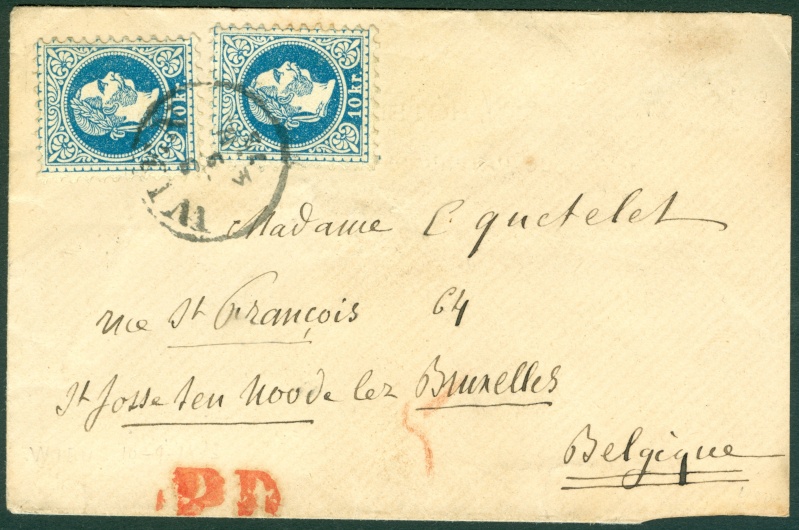 10 kr.
10 kr.
Madame E quetelet
rue St François 64
St Josse ten Noode lez Bruxelles
Belgique
P.D.